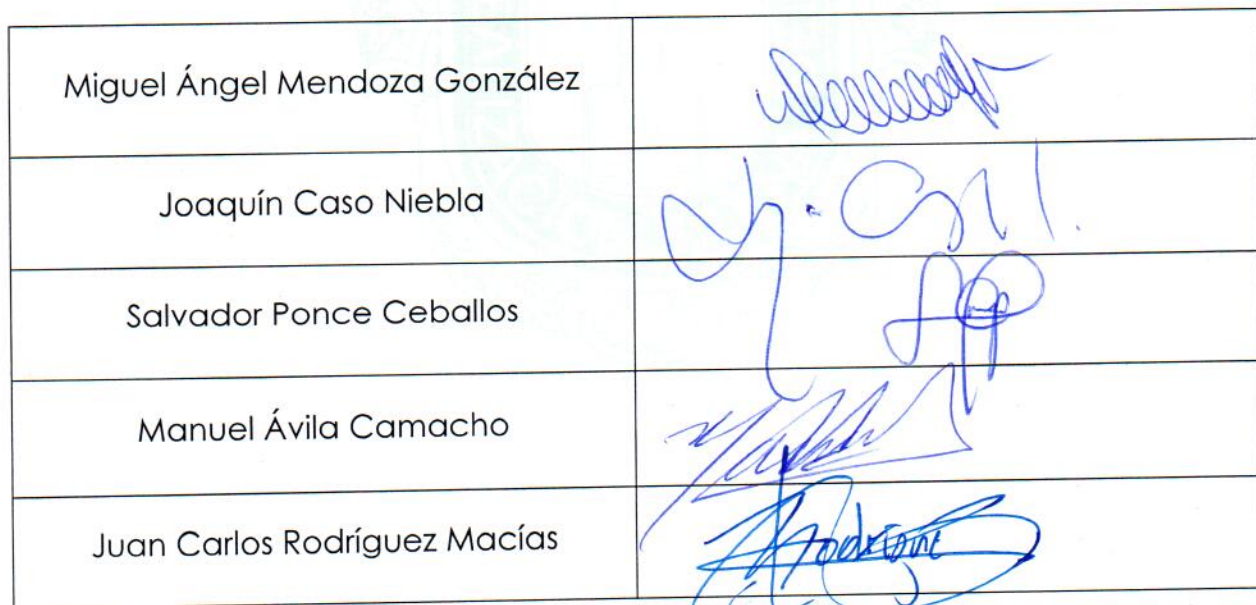 Miguel Ángel Mendoza González
Joaquín Caso Niebla
Salvador Ponce Ceballos
Manuel Ávila Camacho
Juan Carlos Rodríguez Macías